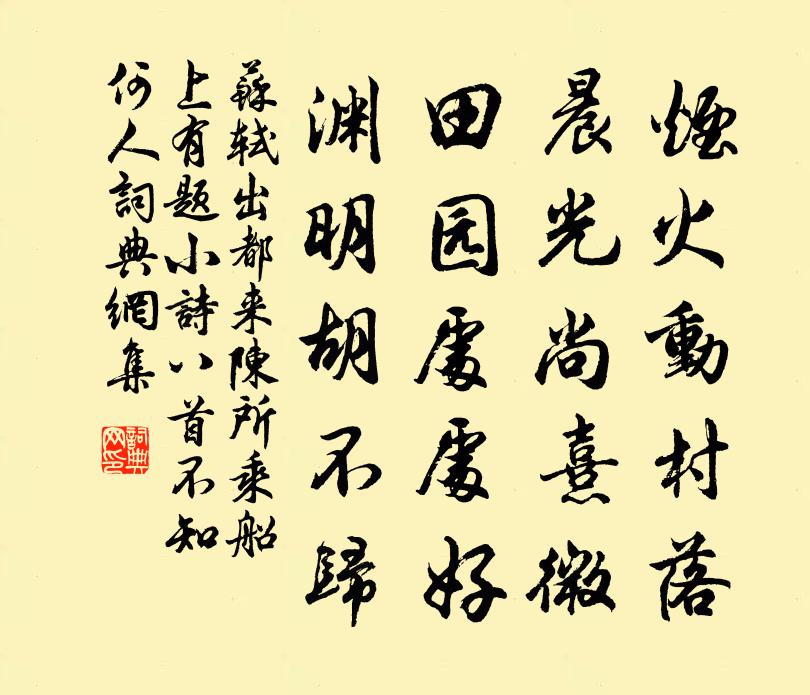 煙火動村落
晨光尚熹微
田园處處好
渊明胡不歸
蘇軾出都来陳所乘船
上有題小詩八首不知
何人詞典網集
詞典
网印